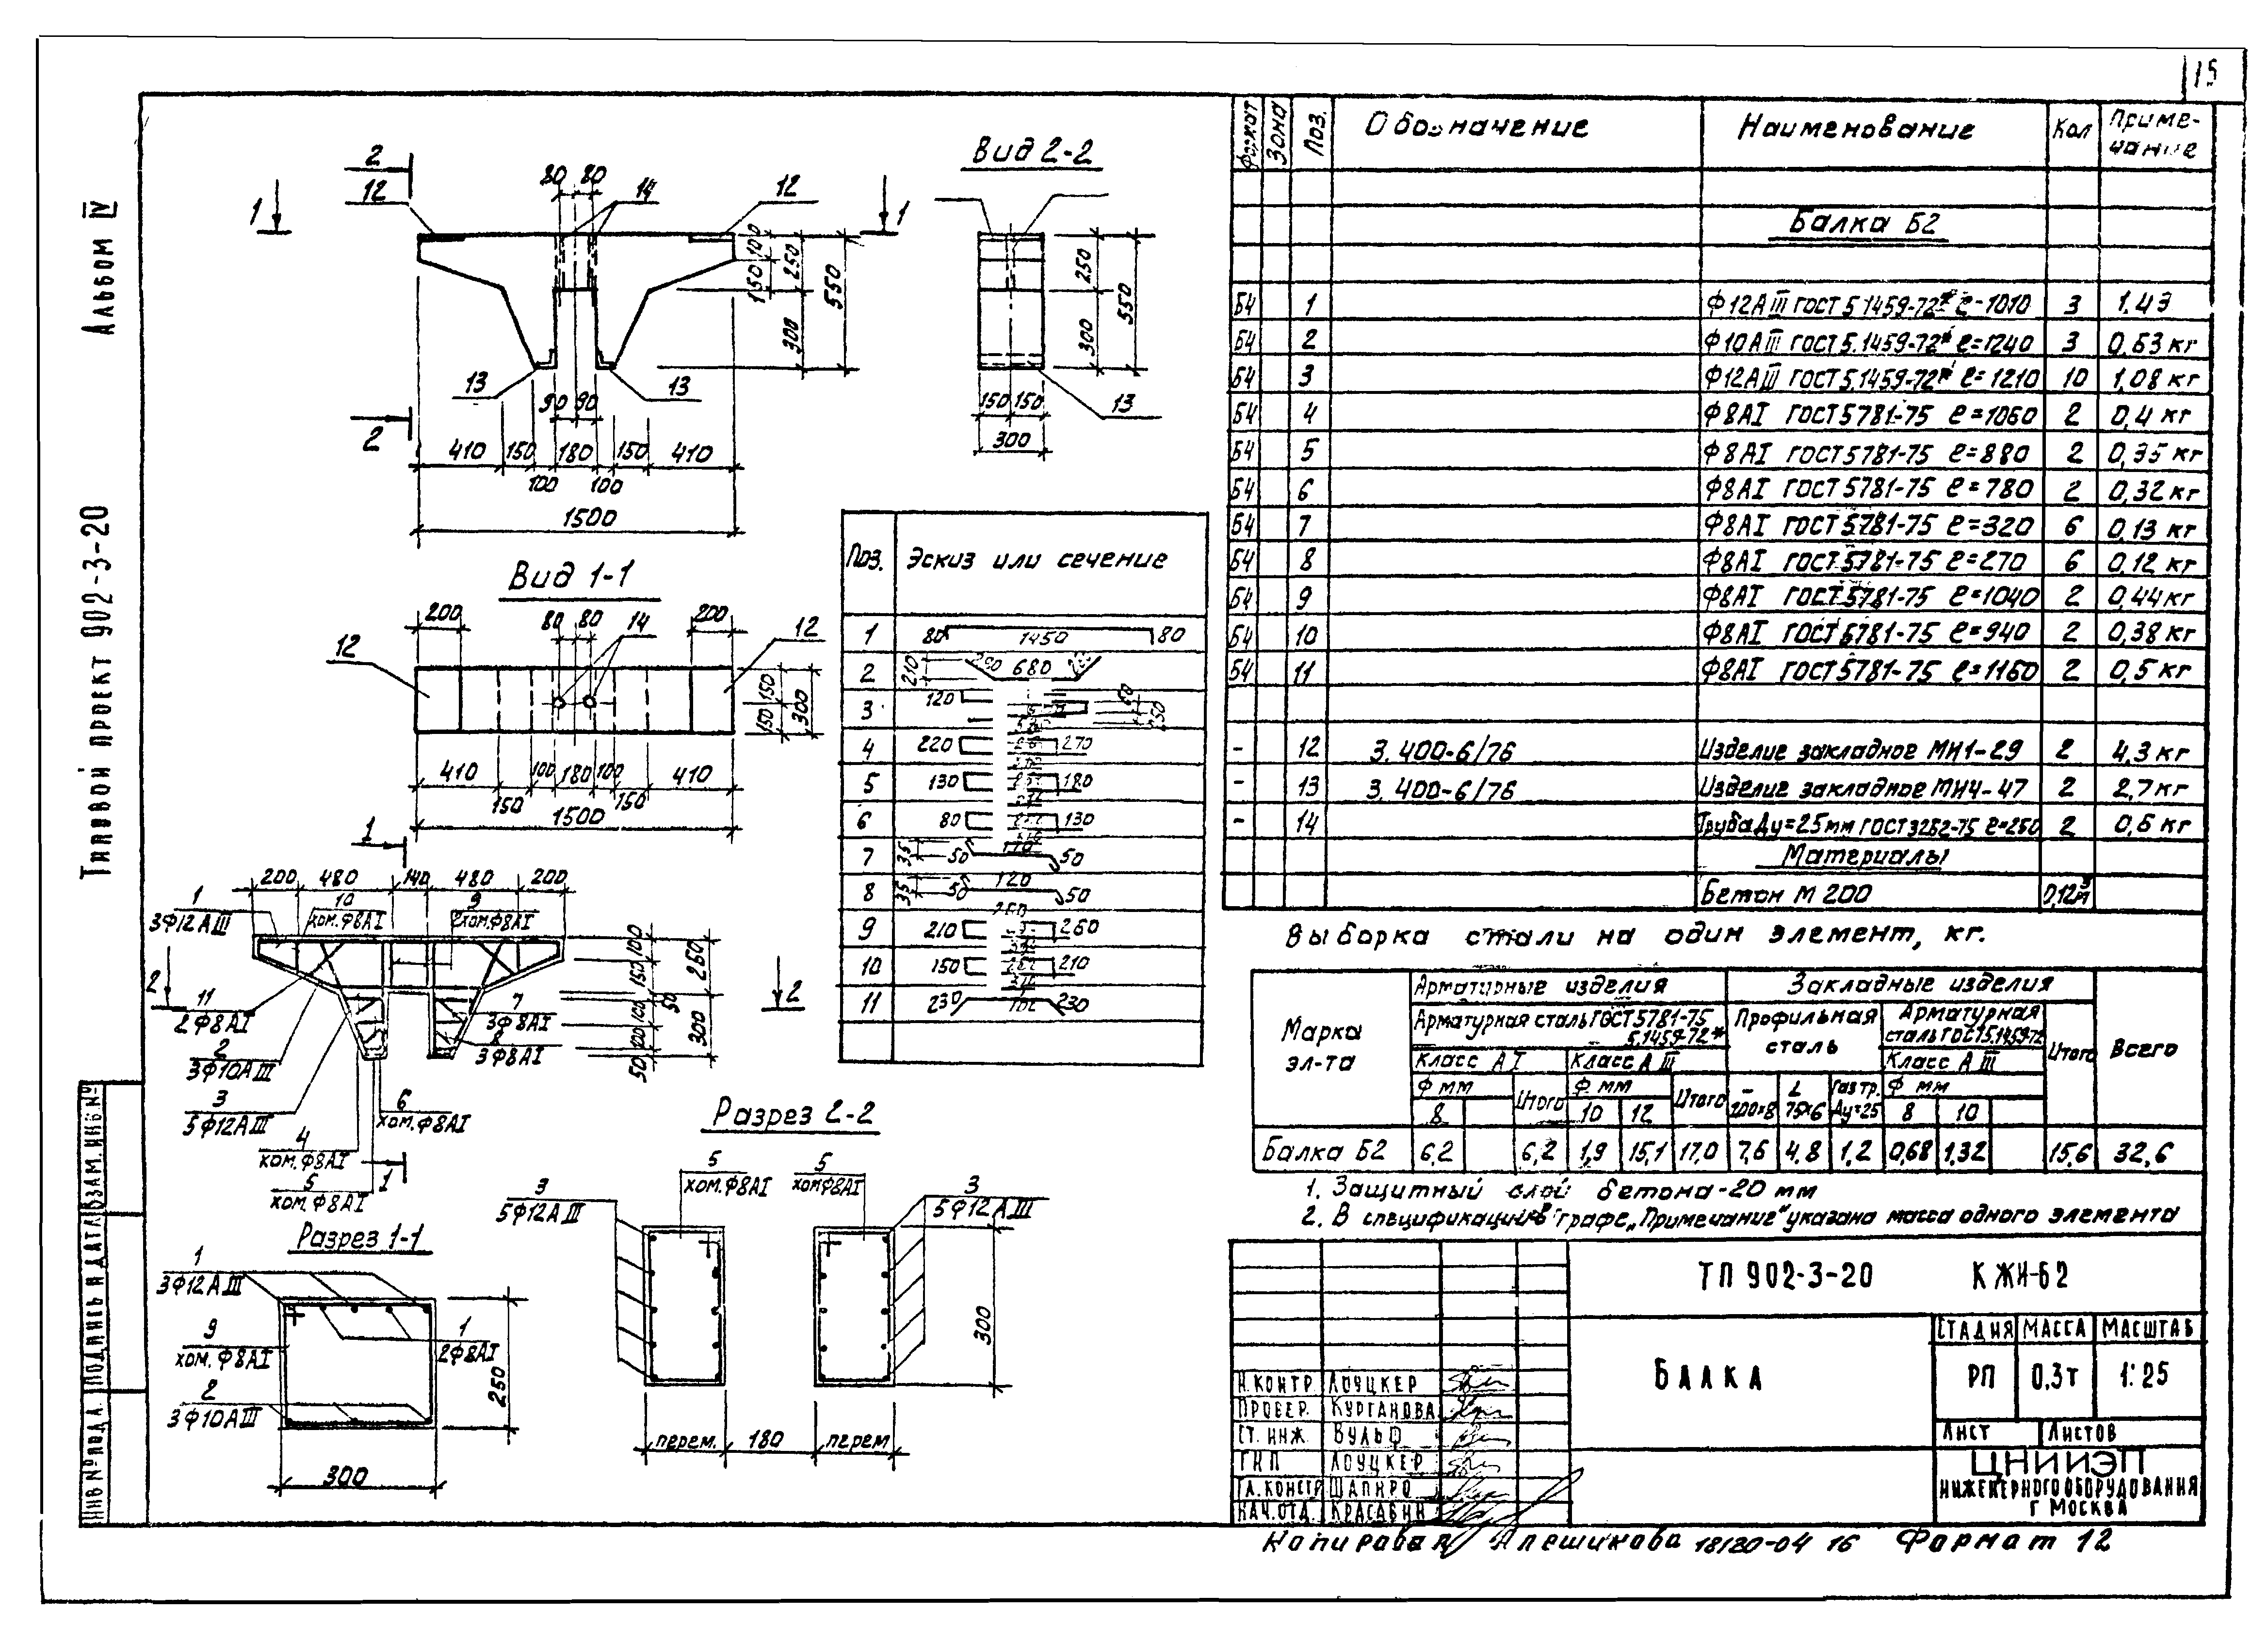 15
Альбом IV
Типовой проект 902-3-20
ИНВ № ПОДЛ. ПОДПИСЬ И ДАТА ВЗАМ. ИНВ. №
2
12
80 80
14
12
1
1
100
150
250
300
550
13
13
90 90
2
410 150 180 150 410
100 100
1500
Вид 2-2
250
300
550
13
150 150
300
Вид 1-1
200
80 80
14
200
12
12
150
150
300
410 100 180 100 410
150 150
1500
1
200 480 140 480 200
1
3Ф12АIII
10
хом. Ф8АI
9
2хом. Ф8АI
2
2
100
150
250
50
100
100
50
300
11
2Ф8АI
2
3Ф10АIII
3
5Ф12АIII
4
хом. Ф8АI
5
хом. Ф8АI
6
хом. Ф8АI
7
3Ф8АI
8
3Ф8АI
1
Разрез 1-1
1
3Ф12АIII
9
хом. Ф8АI
2
3Ф10АIII
1
2Ф8АI
250
300
Разрез 2-2
5
хом. Ф8АI
5
хомФ8АI
3
5Ф12АIII
3
5Ф12АIII
300
перем. 180 перем
Поз. Эскиз или сечение
1 80 1450 80
2 210 680
3 120
4 220 270
5 130 180
6 80 130
7 35 50 50
8 35 50 120 50
9 210 260
10 150 210
11 230 230
Формат Зона Поз. Обозначение Наименование Кол Приме-
чание
Балка Б2
Б4 1 Ф12АIII ГОСТ 5.1459-72* ℓ-1010 3 1.43
Б4 2 Ф10АIII ГОСТ 5.1459-72* ℓ=1240 3 0,63 кг
Б4 3 Ф12АIII ГОСТ 5.1459-72* ℓ=1210 10 1,08 кг
Б4 4 Ф8АI ГОСТ 5781-75 ℓ=1060 2 0,4 кг
Б4 5 Ф8АI ГОСТ 5781-75 ℓ=880 2 0,35 кг
Б4 6 Ф8АI ГОСТ 5781-75 ℓ=780 2 0,32 кг
Б4 7 Ф8АI ГОСТ 5781-75 ℓ=320 6 0,13 кг
Б4 8 Ф8АI ГОСТ 5781-75 ℓ=270 6 0,12 кг
Б4 9 Ф8АI ГОСТ 5781-75 ℓ=1040 2 0,44 кг
Б4 10 Ф8АI ГОСТ 5781-75 ℓ=940 2 0,38 кг
Б4 11 Ф8АI ГОСТ 5781-75 ℓ=1160 2 0,5 кг
- 12 3.400-6/76 Изделие закладное МН1-29 2 4,3 кг
- 13 3.400-6/76 Изделие закладное МН4-47 2 2,7 кг
- 14 Труба Ду=25мм ГОСТ 3262-75 ℓ=250 2 0,6 кг
Материалы
Бетон М 200 0,12 м³
Выборка стали на один элемент, кг.
Марка
эл-та
Арматурные изделия Закладные изделия
Арматурная сталь ГОСТ 5781-75
5.1459-72*
Профильная
сталь
Арматурная
сталь ГОСТ 5.1459-72
Итого Всего
Класс АI Класс АIII Класс АIII
Ф мм Итого Ф мм Итого -200×8 L 75×6 Газ тр. Ду=25 Ф мм
8 10 12 8 10
Балка Б2 6,2 6,2 1,9 15,1 17,0 7,6 4,8 1,2 0,68 1,32 15,6 32,6
1. Защитный слой бетона-20 мм
2. В спецификации в графе „Примечание" указана масса одного элемента
ТП 902-3-20 КЖИ-Б2
БАЛКА
СТАДИЯ МАССА МАСШТАБ
РП 0,3т 1:25
ЛИСТ ЛИСТОВ
ЦНИИЭП
ИНЖЕНЕРНОГО ОБОРУДОВАНИЯ
Г МОСКВА
Н.КОНТР ЛОУЦКЕР
ПРОВЕР. КУРГАНОВА
СТ. ИНЖ. ВУЛЬФ
ГИП ЛОУЦКЕР
ГЛ.КОНСТР ШАПИРО
НАЧ.ОТД. КРАСАВИН
Копировал Алешикова 18120-04 16 Формат 12